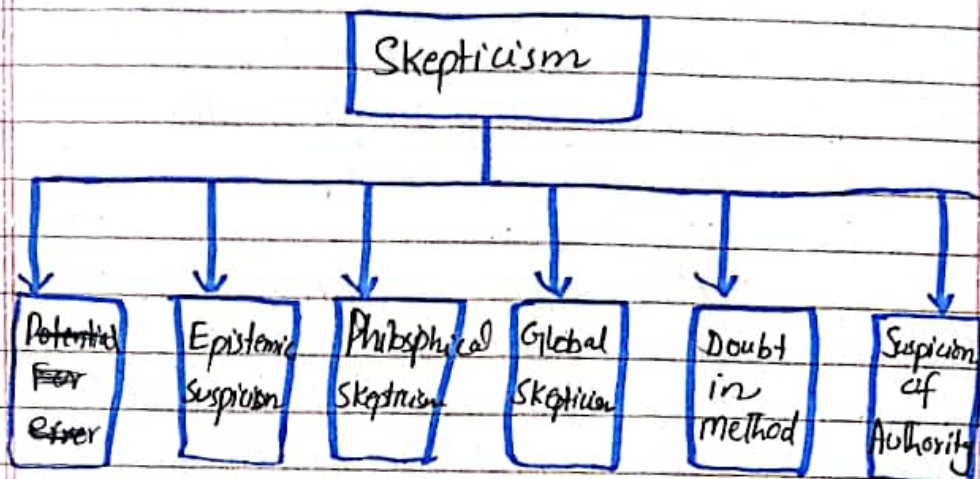 Skepticism
Potential
For
error
Epistemic
Suspicion
Philosphical
Skepticism
Global
Skepticism
Doubt
in
method
Suspicion
of
Authority